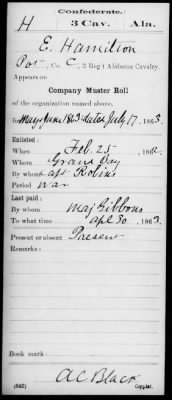 Confederate.
H 3 Cav. Ala.
E. Hamilton
Co. C, 3 Reg't Alabama Cavalry.
Appears on
Company Muster Roll
of the organization named above,
for May & June 1863 dated July 17, 1863.
Enlisted:
When Feb. 25, 1862.
Where Grand Bay
By whom Capt Robins
Period War
Last paid:
By whom Maj Gibbons
To what time Apl 30, 1863.
Present or absent Present
Remarks:
Book mark:
(642) A C Black
Copyist.